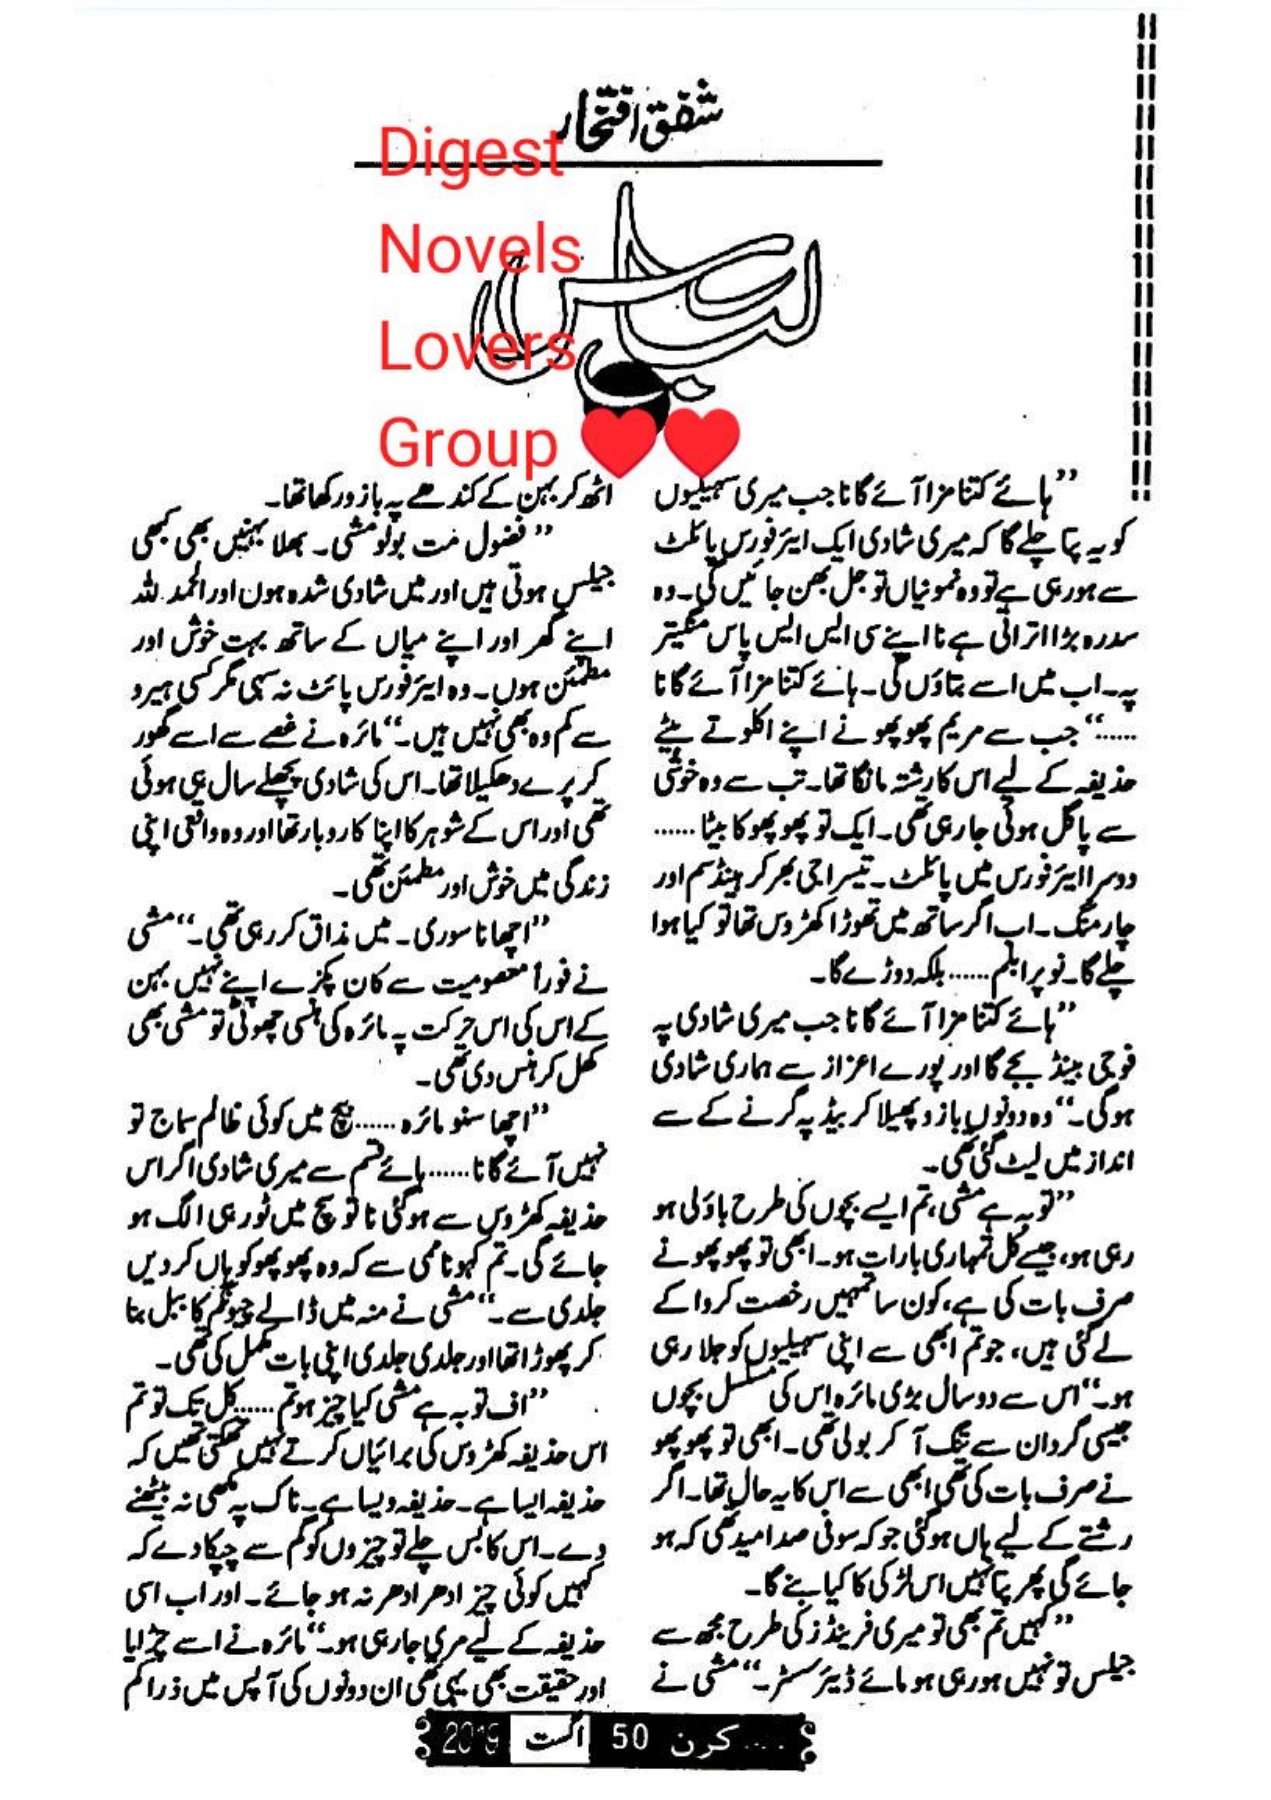 شفق افتخار
Digest
Novels
Lovers
Group
لباس
”ہائے کتنا مزا آئے گا نا جب میری سہیلیوں
کو یہ پتا چلے گا کہ میری شادی ایک ایئر فورس پائلٹ
سے ہو رہی ہے تو وہ نمونیاں تو جل بھن جائیں گی۔ وہ
سدرہ بڑا اتراتی ہے نا اپنے سی ایس ایس پاس منگیتر
پہ۔ اب میں اسے بتاؤں گی۔ ہائے کتنا مزا آئے گا نا
......“ جب سے مریم پھوپھو نے اپنے اکلوتے بیٹے
حذیفہ کے لیے اس کا رشتہ مانگا تھا۔ تب سے وہ خوشی
سے پاگل ہوئی جا رہی تھی۔ ایک تو پھوپھو کا بیٹا ......
دوسرا ایئر فورس میں پائلٹ۔ تیسرا جی بھر کر ہینڈسم اور
چارمنگ۔ اب اگر ساتھ میں تھوڑا کھڑوس تھا تو کیا ہوا
چلے گا۔ نو پرابلم ...... بلکہ دوڑے گا۔
”ہائے کتنا مزا آئے گا نا جب میری شادی پہ
فوجی بینڈ بجے گا اور پورے اعزاز سے ہماری شادی
ہوگی۔“ وہ دونوں بازو پھیلا کر بیڈ پہ گرنے کے سے
انداز میں لیٹ گئی تھی۔
”توبہ ہے مشی، تم ایسے بچوں کی طرح باؤلی ہو
رہی ہو، جیسے کل تمہاری بارات ہو۔ ابھی تو پھوپھو نے
صرف بات کی ہے، کون سا تمہیں رخصت کروا کے
لے گئی ہیں، جو تم ابھی سے اپنی سہیلیوں کو جلا رہی
ہو۔“ اس سے دو سال بڑی مائرہ اس کی مسلسل بچوں
جیسی گردان سے تنگ آ کر بولی تھی۔ ابھی تو پھوپھو
نے صرف بات کی تھی ابھی سے اس کا یہ حال تھا۔ اگر
رشتے کے لیے ہاں ہو گئی جو کہ سو فی صد امید تھی کہ ہو
جائے گی پھر پتا نہیں اس لڑکی کا کیا بنے گا۔
”کہیں تم بھی تو میری فرینڈز کی طرح مجھ سے
جیلس تو نہیں ہو رہی ہو مائے ڈیئر سسٹر۔“ مشی نے
اٹھ کر بہن کے کندھے پہ بازو رکھا تھا۔
”فضول مت بولو مشی۔ بھلا بہنیں بھی کبھی
جیلس ہوتی ہیں اور میں شادی شدہ ہوں اور الحمدللہ
اپنے گھر اور اپنے میاں کے ساتھ بہت خوش اور
مطمئن ہوں۔ وہ ایئر فورس پائلٹ نہ سہی مگر کسی ہیرو
سے کم وہ بھی نہیں ہیں۔“ مائرہ نے غصے سے اسے گھور
کر پرے دھکیلا تھا۔ اس کی شادی پچھلے سال ہی ہوئی
تھی اور اس کے شوہر کا اپنا کاروبار تھا اور وہ واقعی اپنی
زندگی میں خوش اور مطمئن تھی۔
”اچھا نا سوری۔ میں مذاق کر رہی تھی۔“ مشی
نے فوراً معصومیت سے کان پکڑے اپنے نہیں بہن
کے اس کی اس حرکت پہ مائرہ کی ہنسی چھوٹی تو مشی بھی
کھل کر ہنس دی تھی۔
”اچھا سنو مائرہ ...... بیچ میں کوئی ظالم سماج تو
نہیں آئے گا نا ...... ہائے قسم سے میری شادی اگر اس
حذیفہ کھڑوس سے ہو گئی نا تو سچ میں ٹور ہی الگ ہو
جائے گی۔ تم کہو نا ممی سے کہ وہ پھوپھو کو ہاں کر دیں
جلدی سے۔“ مشی نے منہ میں ڈالے چیونگم کا ببل بنا
کر پھوڑا تھا اور جلدی جلدی اپنی بات مکمل کی تھی۔
”اف توبہ ہے مشی کیا چیز ہو تم ...... کل تک تو تم
اس حذیفہ کھڑوس کی برائیاں کرتے نہیں تھکتی تھیں کہ
حذیفہ ایسا ہے۔ حذیفہ ویسا ہے۔ ناک پہ مکھی نہ بیٹھنے
دے۔ اس کا بس چلے تو چیزوں کو گم سے چپکا دے کہ
کہیں کوئی چیز ادھر ادھر نہ ہو جائے۔ اور اب اسی
حذیفہ کے لیے مری جا رہی ہو۔“ مائرہ نے اسے چڑایا
اور حقیقت بھی یہی تھی ان دونوں کی آپس میں ذرا کم
کرن 50 اگست 2019